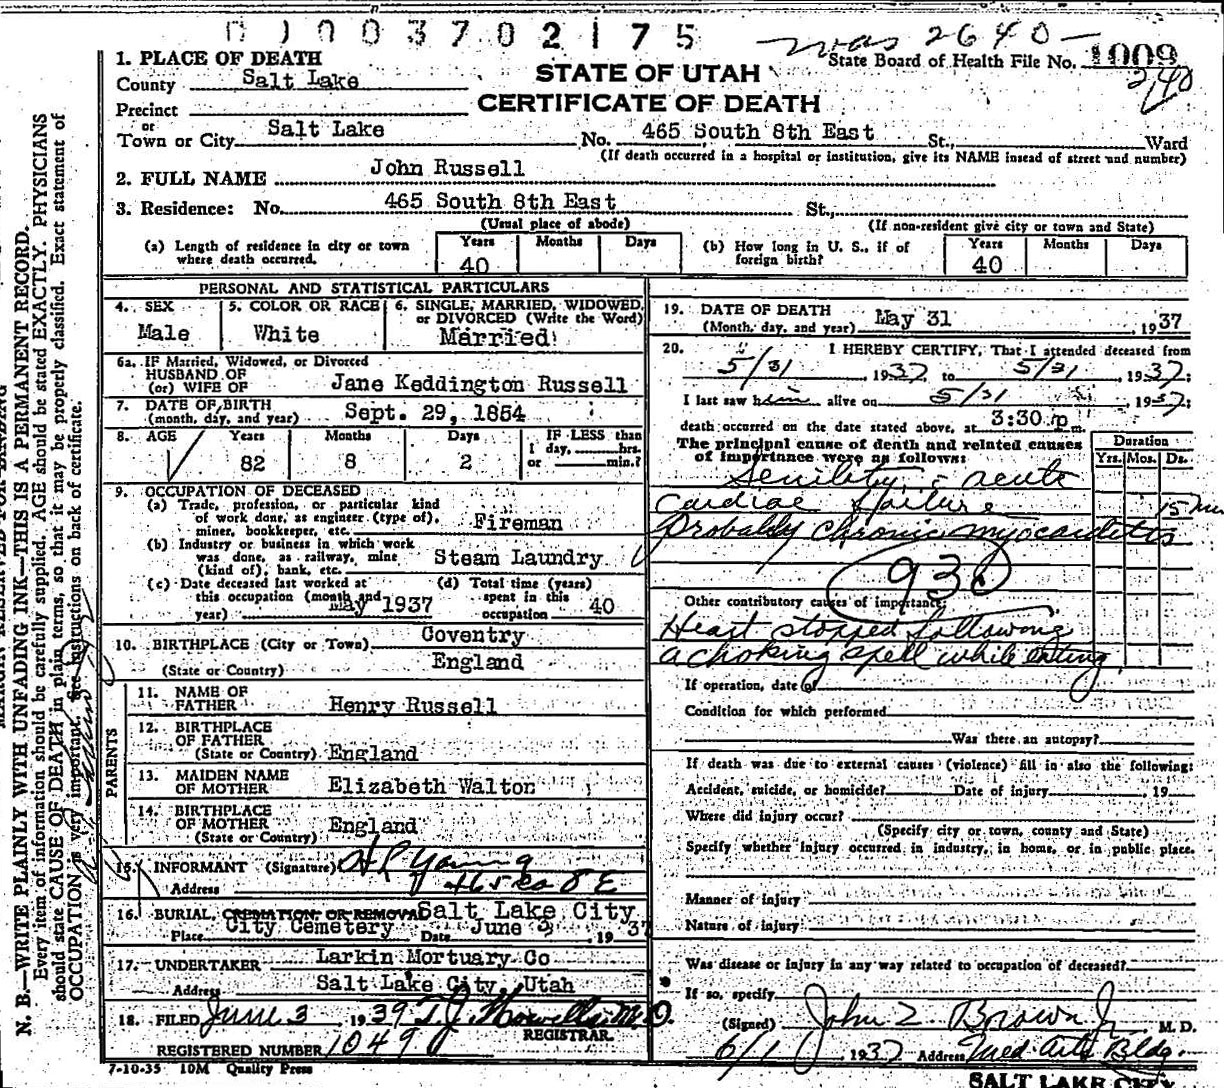 D J 0 0 3 7 0 2 1 7 5
was 2640-
1. PLACE OF DEATH
State Board of Health File No. 1009
240
County Salt Lake
STATE OF UTAH
CERTIFICATE OF DEATH
Precinct
or
Town or City Salt Lake No. 465 South 8th East St., Ward
(If death occurred in a hospital or institution, give its NAME insead of street and number)
2. FULL NAME John Russell
3. Residence: No. 465 South 8th East St.,
(Usual place of abode) (If non-resident give city or town and State)
(a) Length of residence in city or town where death occurred. Years 40 Months Days
(b) How long in U. S., if of foreign birth? Years 40 Months Days
PERSONAL AND STATISTICAL PARTICULARS
4. SEX Male
5. COLOR OR RACE White
6. SINGLE, MARRIED, WIDOWED, or DIVORCED (Write the Word) Married
6a. IF Married, Widowed, or Divorced
HUSBAND OF
(or) WIFE OF Jane Keddington Russell
7. DATE OF BIRTH
(month, day, and year) Sept. 29, 1854
8. AGE Years 82 Months 8 Days 2
IF LESS than
1 day, hrs.
or min.?
9. OCCUPATION OF DECEASED
(a) Trade, profession, or particular kind
of work done, as engineer (type of),
miner, bookkeeper, etc. Fireman
(b) Industry or business in which work
was done, as railway, mine
(kind of), bank, etc. Steam Laundry
(c) Date deceased last worked at
this occupation (month and
year) May 1937
(d) Total time (years)
spent in this
occupation 40
10. BIRTHPLACE (City or Town) Coventry
(State or Country) England
PARENTS
11. NAME OF
FATHER Henry Russell
12. BIRTHPLACE
OF FATHER
(State or Country) England
13. MAIDEN NAME
OF MOTHER Elizabeth Walton
14. BIRTHPLACE
OF MOTHER
(State or Country) England
15. INFORMANT (Signature) H L Young
Address 465 So 8 E
16. BURIAL, CREMATION, OR REMOVAL Salt Lake City
Place City Cemetery Date June 3, 1937
17. UNDERTAKER Larkin Mortuary Co
Address Salt Lake City, Utah
18. FILED June 3 1939 T.J. Howells M.D.
REGISTRAR.
REGISTERED NUMBER 1049
7-10-35 10M Quality Press
19. DATE OF DEATH
(Month, day, and year) May 31, 1937
20. I HEREBY CERTIFY, That I attended deceased from
5/31, 1937 to 5/31, 1937;
I last saw him alive on 5/31, 1937;
death occurred on the date stated above, at 3:30 p m.
The principal cause of death and related causes
of importance were as follows:
Duration
Yrs. Mos. Ds.
Senility - acute
cardiac failure 15 min
Probably chronic myocarditis
930
Other contributory causes of importance
Heart stopped following
a choking spell while eating
If operation, date of
Condition for which performed
Was there an autopsy?
If death was due to external causes (violence) fill in also the following:
Accident, suicide, or homicide? Date of injury , 19
Where did injury occur?
(Specify city or town, county and State)
Specify whether injury occurred in industry, in home, or in public place.
Manner of injury
Nature of injury
Was disease or injury in any way related to occupation of deceased?
If so, specify
(Signed) John Z. Brown Jr M. D.
6/1, 1937 Address Med. Arts Bldg.
SALT LAKE CITY
MARGIN RESERVED FOR BINDING
N. B.—WRITE PLAINLY WITH UNFADING INK—THIS IS A PERMANENT RECORD.
Every item of information should be carefully supplied. AGE should be stated EXACTLY. PHYSICIANS
should state CAUSE OF DEATH in plain terms, so that it may be properly classified. Exact statement of
OCCUPATION is very important. See instructions on back of certificate.